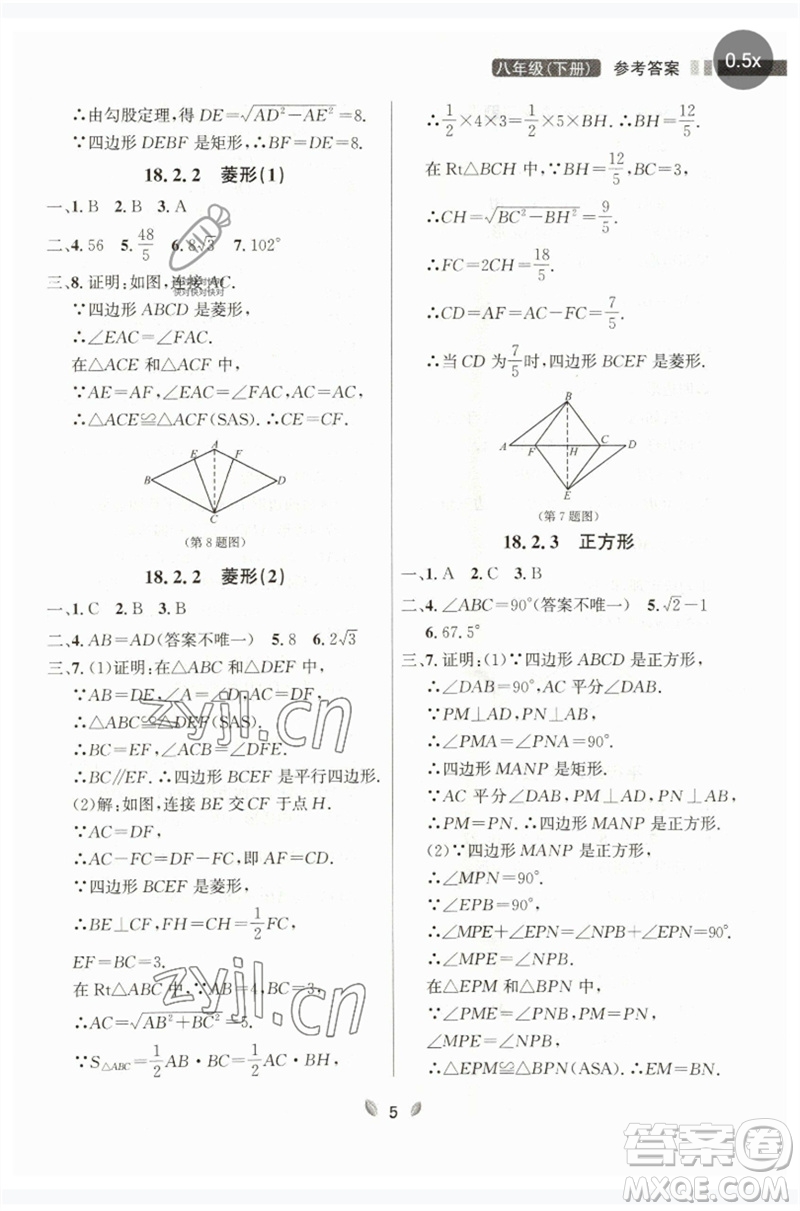 0.5x
八年级(下册) 参考答案
∴由勾股定理，得 DE=√(AD²-AE²)=8.
∵四边形 DEBF 是矩形，∴BF=DE=8.
18.2.2 菱形(1)
一、1. B 2. B 3. A
二、4. 56 5. 48/5 6. 8√3 7. 102°
三、8. 证明：如图，连接 AC.
快对快对快对
快对快对快对
∵四边形 ABCD 是菱形，
∴∠EAC=∠FAC.
在△ACE 和△ACF 中，
∵AE=AF，∠EAC=∠FAC，AC=AC，
∴△ACE≌△ACF(SAS). ∴CE=CF.
A
E F
B D
C
(第 8 题图)
18.2.2 菱形(2)
一、1. C 2. B 3. B
二、4. AB=AD(答案不唯一) 5. 8 6. 2√3
三、7. (1)证明：在△ABC 和△DEF 中，
∵AB=DE，∠A=∠D，AC=DF，
∴△ABC≌△DEF(SAS).
∴BC=EF，∠ACB=∠DFE.
∴BC∥EF. ∴四边形 BCEF 是平行四边形.
(2)解：如图，连接 BE 交 CF 于点 H.
∵AC=DF，
∴AC-CF=DF-CF，即 AF=CD.
∵四边形 BCEF 是菱形，
∴BE⊥CF，FH=CH=1/2FC，
EF=BC=3.
在 Rt△ABC 中，∵AB=4，BC=3，
∴AC=√(AB²+BC²)=5.
∵S△ABC=1/2AB·BC=1/2AC·BH，
∴1/2×4×3=1/2×5×BH. ∴BH=12/5.
在 Rt△BCH 中，∵BH=12/5，BC=3，
∴CH=√(BC²-BH²)=9/5.
∴FC=2CH=18/5.
∴CD=AF=AC-FC=7/5.
∴当 CD 为7/5时，四边形 BCEF 是菱形.
B
A F H C D
E
(第 7 题图)
18.2.3 正方形
一、1. A 2. C 3. B
二、4. ∠ABC=90°(答案不唯一) 5. √2-1
6. 67.5°
三、7. 证明：(1)∵四边形 ABCD 是正方形，
∴∠DAB=90°，AC 平分∠DAB.
∵PM⊥AD，PN⊥AB，
∴∠PMA=∠PNA=90°.
∴四边形 MANP 是矩形.
∵AC 平分∠DAB，PM⊥AD，PN⊥AB，
∴PM=PN. ∴四边形 MANP 是正方形.
(2)∵四边形 MANP 是正方形，
∴∠MPN=90°.
∵∠EPB=90°，
∴∠MPE+∠EPN=∠NPB+∠EPN=90°.
∴∠MPE=∠NPB.
在△EPM 和△BPN 中，
∵∠PME=∠PNB，PM=PN，
∠MPE=∠NPB，
∴△EPM≌△BPN(ASA). ∴EM=BN.
zyjl.cn
zyjl.cn
5
答案卷
MXQE.COM